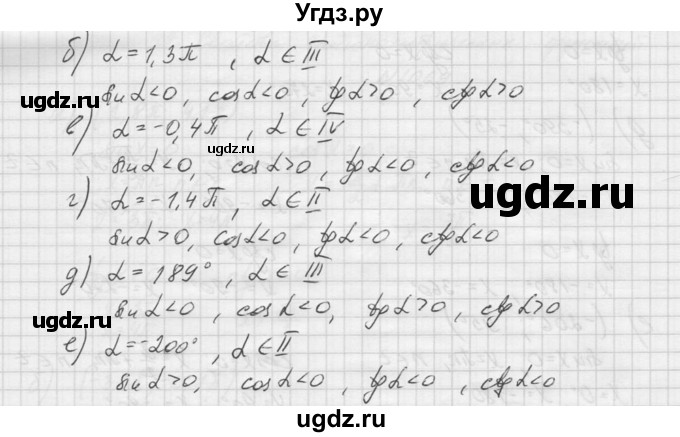 Угдз.ру
б) α = 1,3π , α ∈ III
sin α < 0, cos α < 0, tg α > 0, ctg α > 0
ugdz.ru
ugdz.ru
в) α = -0,4π , α ∈ IV
ugdz.ru
sin α < 0, cos α > 0, tg α < 0, ctg α < 0
г) α = -1,4π , α ∈ II
ugdz.ru
sin α > 0, cos α < 0, tg α < 0, ctg α < 0
д) α = 189° , α ∈ III
sin α < 0, cos α < 0, tg α > 0, ctg α > 0
ugdz.ru
ugdz.ru
е) α = -200° , α ∈ II
sin α > 0, cos α < 0, tg α < 0, ctg α < 0
ugdz.ru